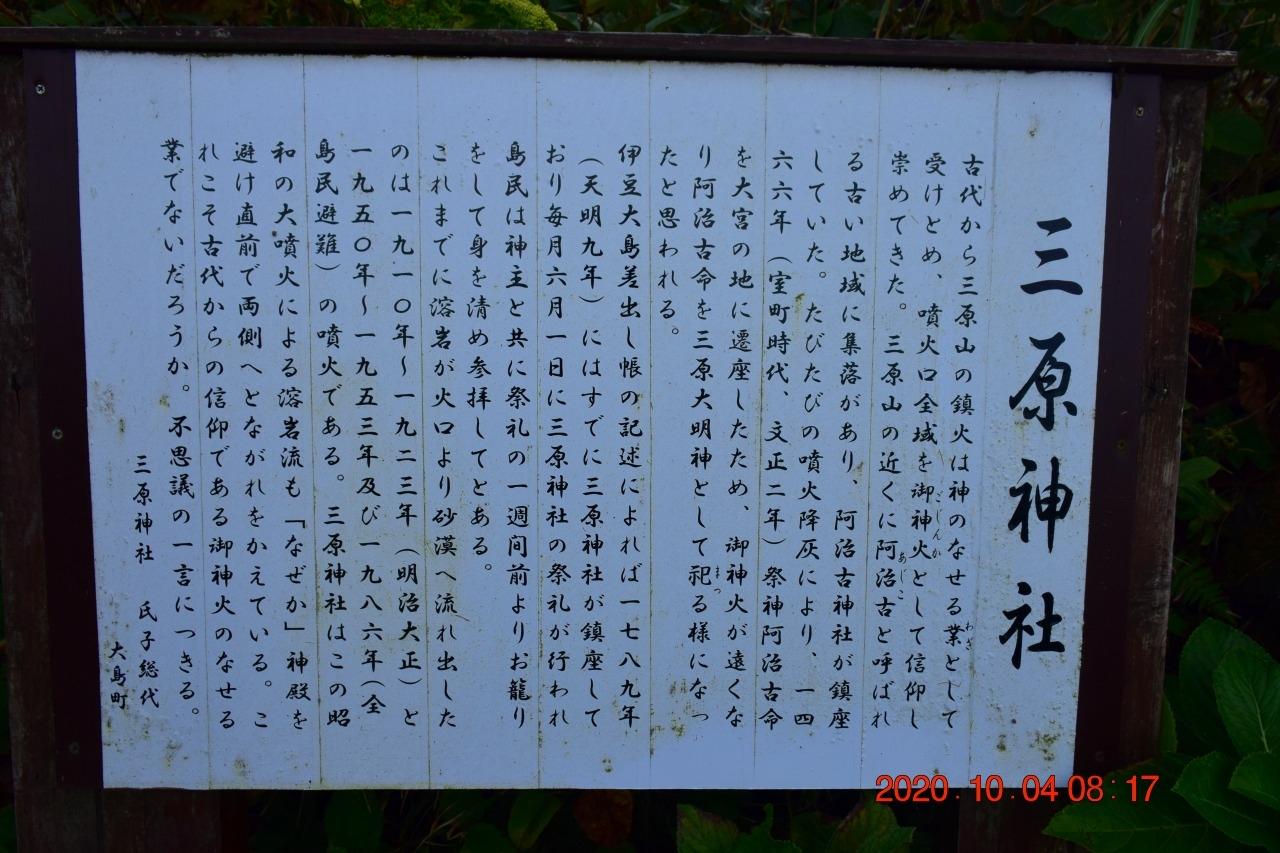 三原神社
古代から三原山の鎮火は神のなせる業として
受けとめ、噴火口全域を御神火として信仰し
崇めてきた。三原山の近くに阿治古と呼ばれ
る古い地域に集落があり、阿治古神社が鎮座
していた。たびたびの噴火降灰により、一四
六六年（室町時代、文正二年）祭神阿治古命
を大宮の地に遷座したため、御神火が遠くな
り阿治古命を三原大明神として祀る様になっ
たと思われる。
伊豆大島差出し帳の記述によれば一七八九年
（天明九年）にはすでに三原神社が鎮座して
おり毎月六月一日に三原神社の祭礼が行われ
島民は神主と共に祭礼の一週間前よりお籠り
をして身を清め参拝してとある。
これまでに溶岩が火口より砂漠へ流れ出した
のは一九一〇年～一九二三年（明治大正）と
一九五〇年～一九五三年及び一九八六年（全
島民避難）の噴火である。三原神社はこの昭
和の大噴火による溶岩流も「なぜか」神殿を
避け直前で両側へとながれをかえている。こ
れこそ古代からの信仰である御神火のなせる
業でないだろうか。不思議の一言につきる。
三原神社　氏子総代
大島町
わざ
ごじんか
あじこ
まつ
2020.10.04 08:17